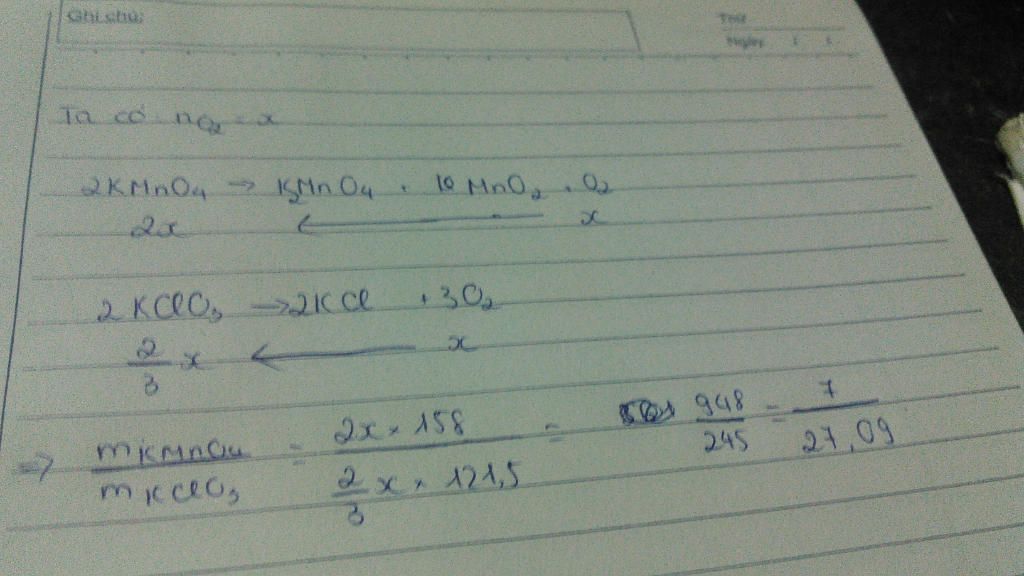 Ghi chú:
Thứ
Ngày / /
Ta có nO2 = x
2KMnO4 → K2MnO4 + MnO2 + O2
2x ← x
2KClO3 → 2KCl + 3O2
2/3 x ← x
=> mKMnO4 / mKClO3 = 2x × 158 / 2/3 x × 121,5 = 948 / 245 = 7 / 27,09